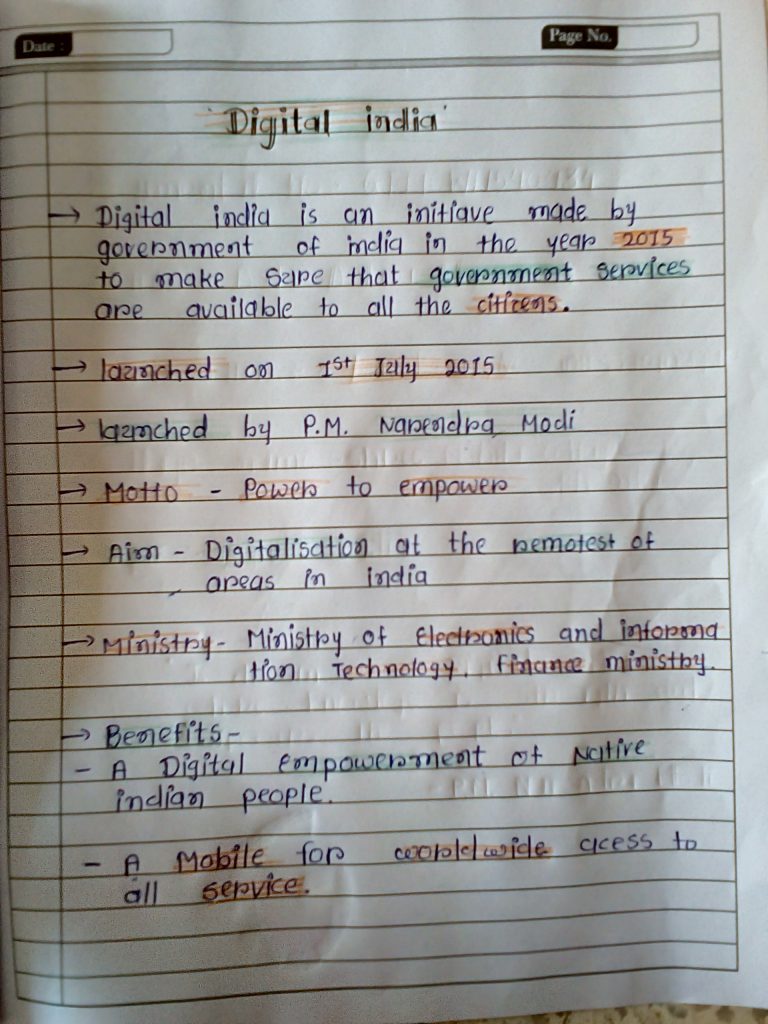 Date :
Page No.
'Digital india'
→ Digital india is an initiave made by
government of india in the year 2015
to make sure that government services
are available to all the citizens.
→ launched on 1st July 2015
→ launched by P.M. Narendra Modi
→ Motto - Power to empower
→ Aim - Digitalisation at the remotest of
areas in india
→ Ministry - Ministry of Electronics and informa
tion Technology. finance ministry.
→ Benefits -
- A Digital empowerment of Native
indian people.
- A Mobile for worldwide acess to
all service.